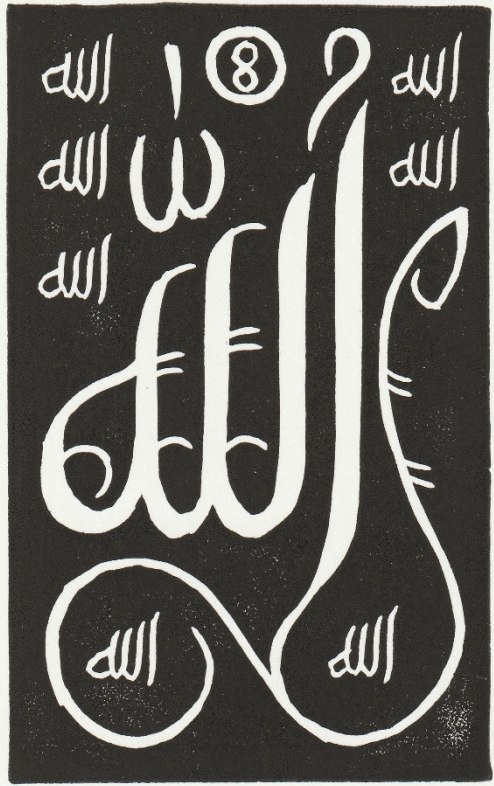 الله 8 الله
الله الله
الله
الله
الله الله